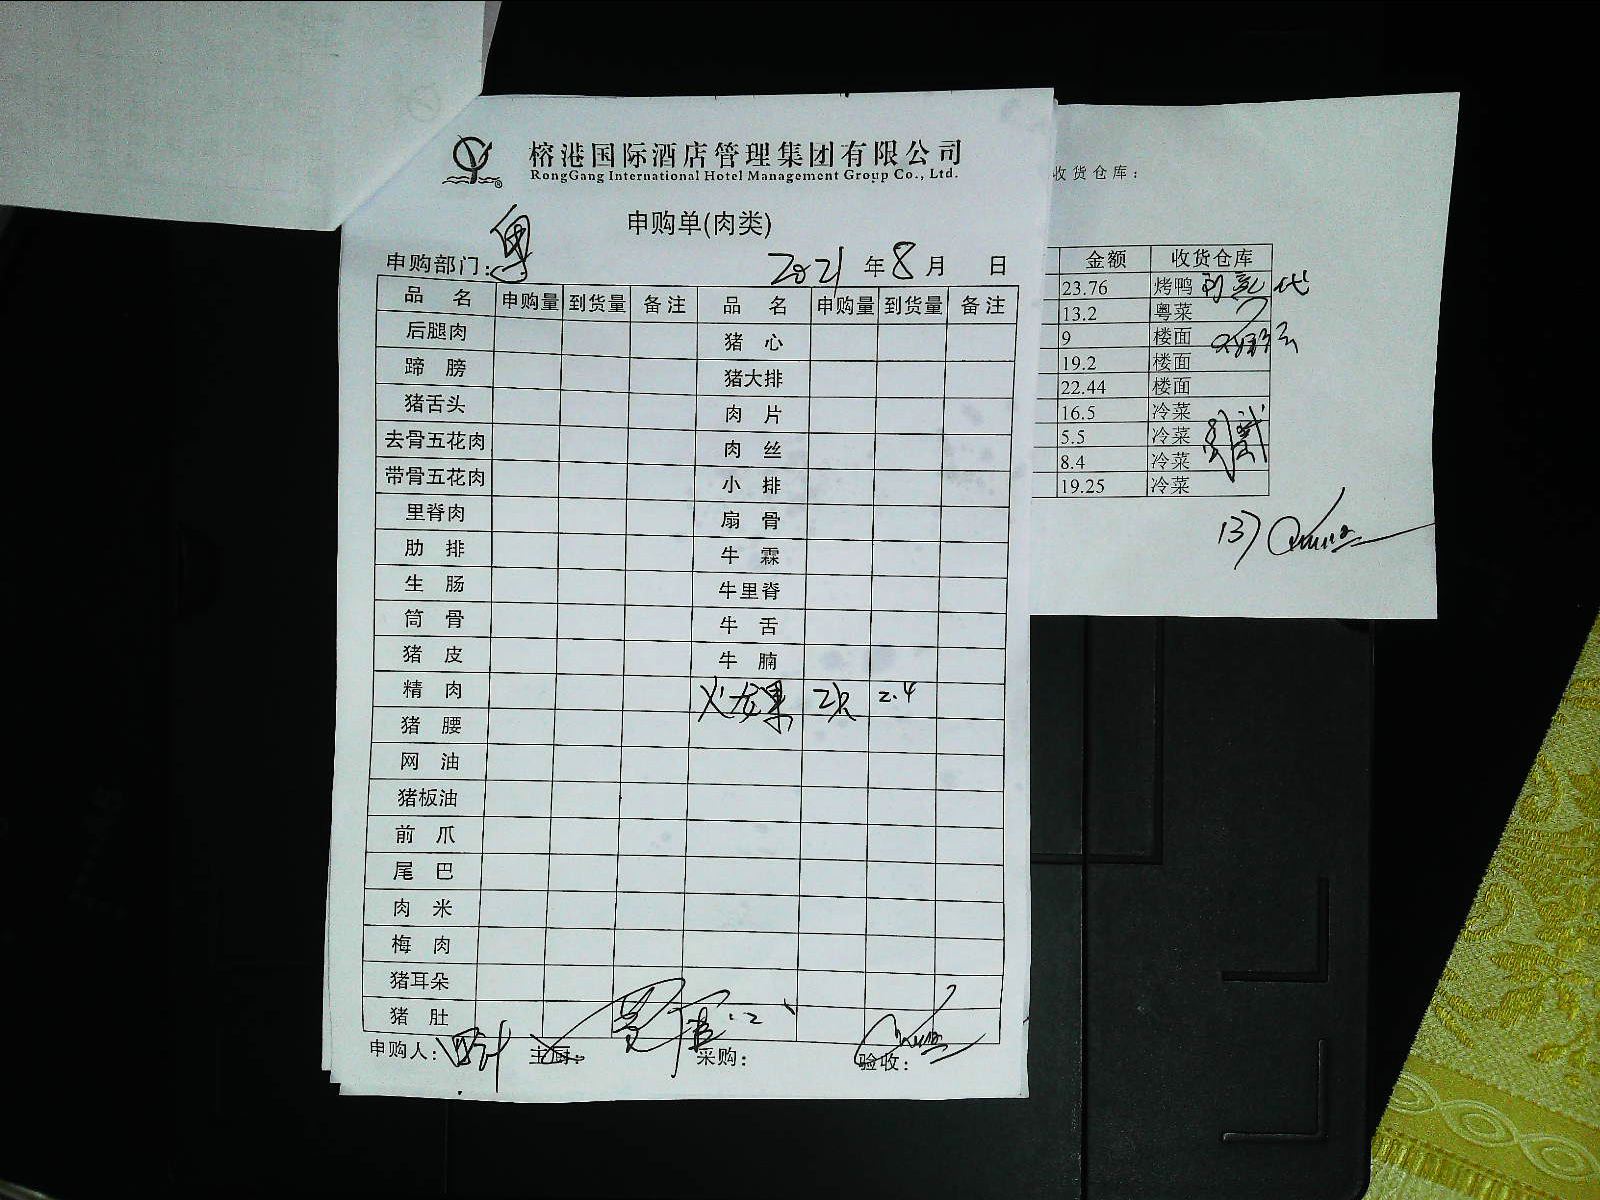 榕港国际酒店管理集团有限公司
RongGang International Hotel Management Group Co., Ltd.
申购单(肉类)
申购部门: 粤 2021 年 8 月 日
品 名 申购量 到货量 备注 品 名 申购量 到货量 备注
后腿肉 猪 心
蹄 膀 猪大排
猪舌头 肉 片
去骨五花肉 肉 丝
带骨五花肉 小 排
里脊肉 扇 骨
肋 排 牛 霖
生 肠 牛里脊
筒 骨 牛 舌
猪 皮 牛 腩
精 肉 火龙果 2只 2.4
猪 腰
网 油
猪板油
前 爪
尾 巴
肉 米
梅 肉
猪耳朵
猪 肚
申购人: 主厨: 采购: 验收:
收货仓库:
金额 收货仓库
23.76 烤鸭
13.2 粤菜
9 楼面
19.2 楼面
22.44 楼面
16.5 冷菜
5.5 冷菜
8.4 冷菜
19.25 冷菜